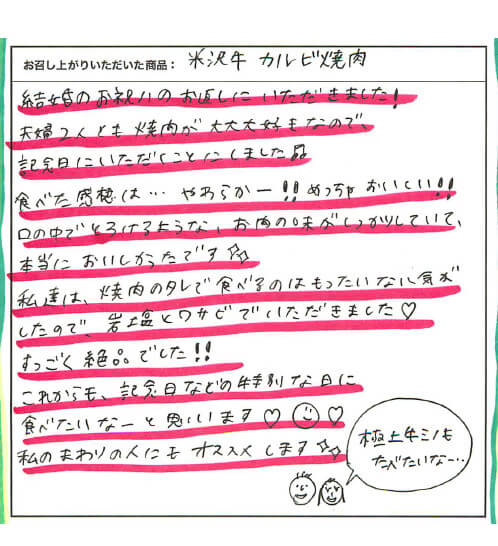 お召し上がりいただいた商品： 米沢牛 カルビ焼肉
結婚のお祝いのお返しにいただきました!
夫婦2人とも焼肉が大大大好きなので、
記念日にいただくことにしました♫
食べた感想は… やわらかー!! めっちゃおいしい!!
口の中でとろけるような、お肉の味がしっかりしていて、
本当においしかったです✨
私達は、焼肉のタレで食べるのはもったいない気が
したので、岩塩とワサビでいただきました♡
すっごく絶品でした!!
これからも、記念日などの特別な日に
食べたいなーと思います♡☺♡
私のまわりの人にもオススメします✨
極上牛ミノも
たべたいなー…